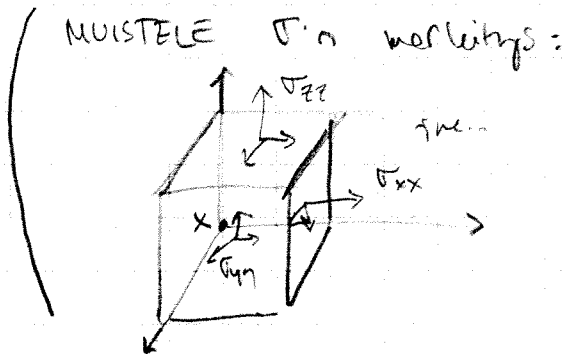 MUISTELE σ:n merkitys:
σzz
jne...
σxx
x
σyy